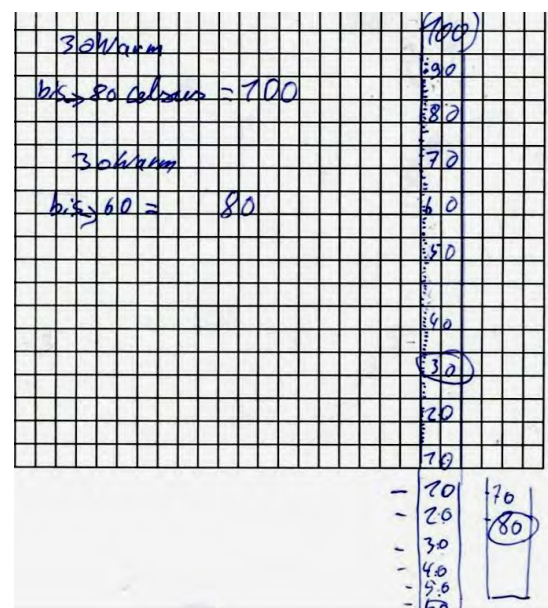 30 Warm
bis 80 Celsius = 100
30 Warm
bis 60 = 80
100
90
80
70
60
50
40
30
20
10
- 10
- 20
- 30
- 40
- 50
70
80